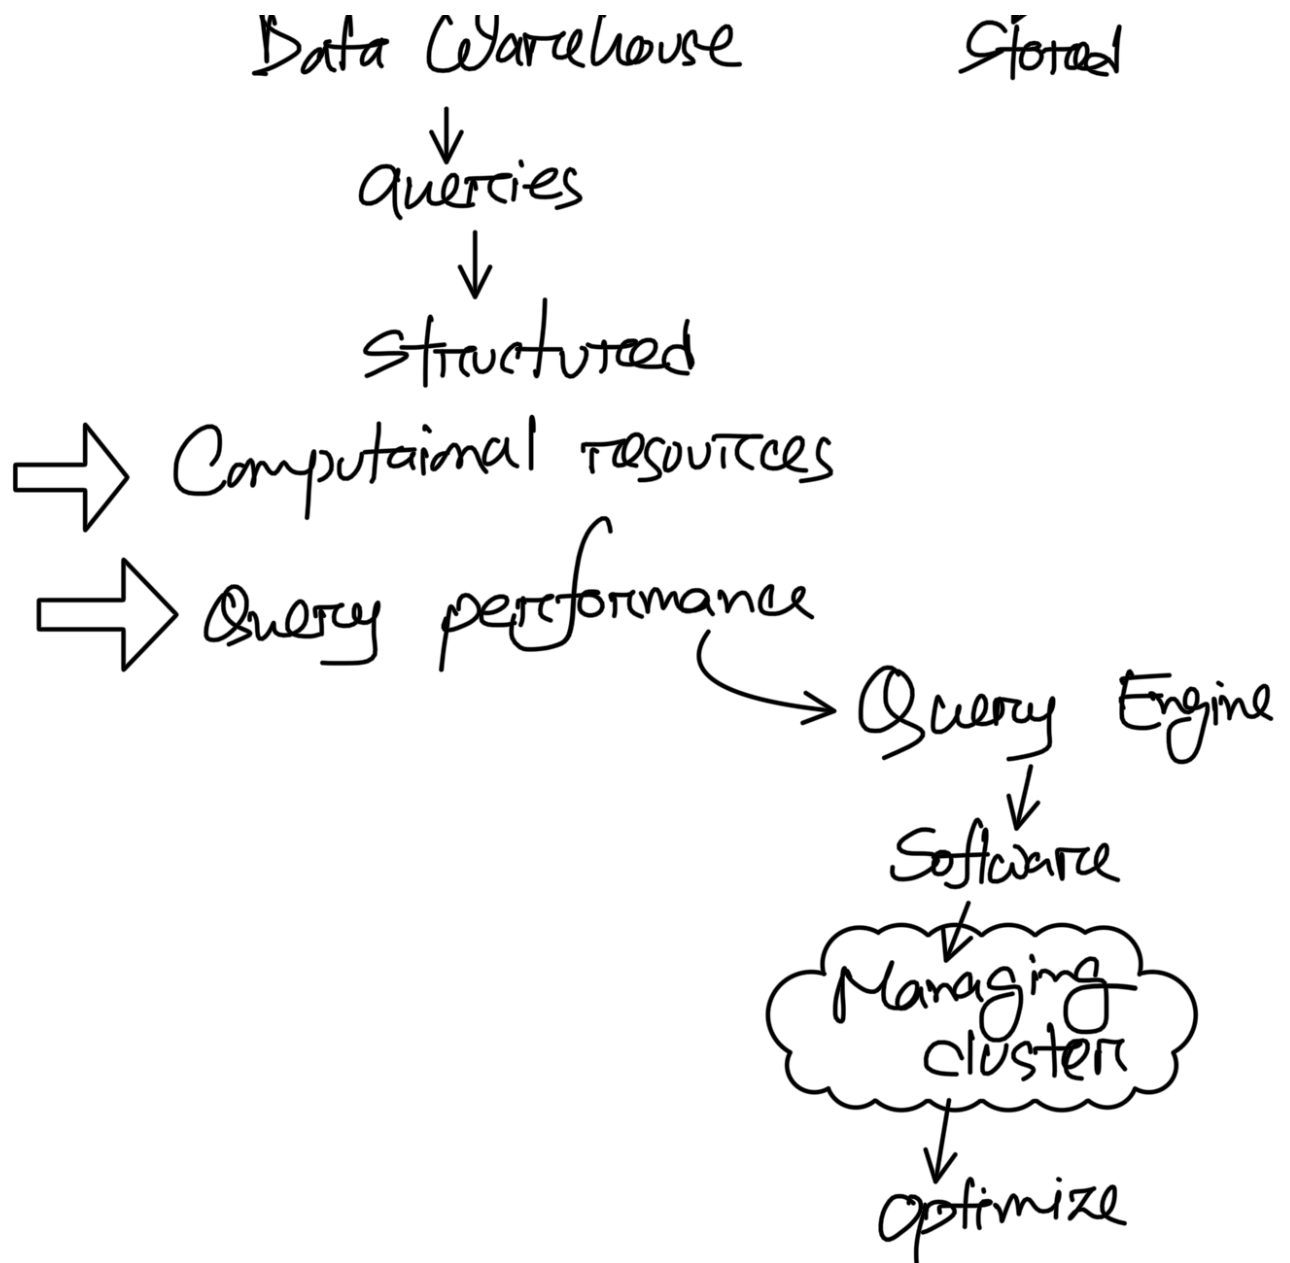 Data Warehouse Stored
queries
structured
Computaional resources
Query performance
Query Engine
Software
Managing
cluster
optimize